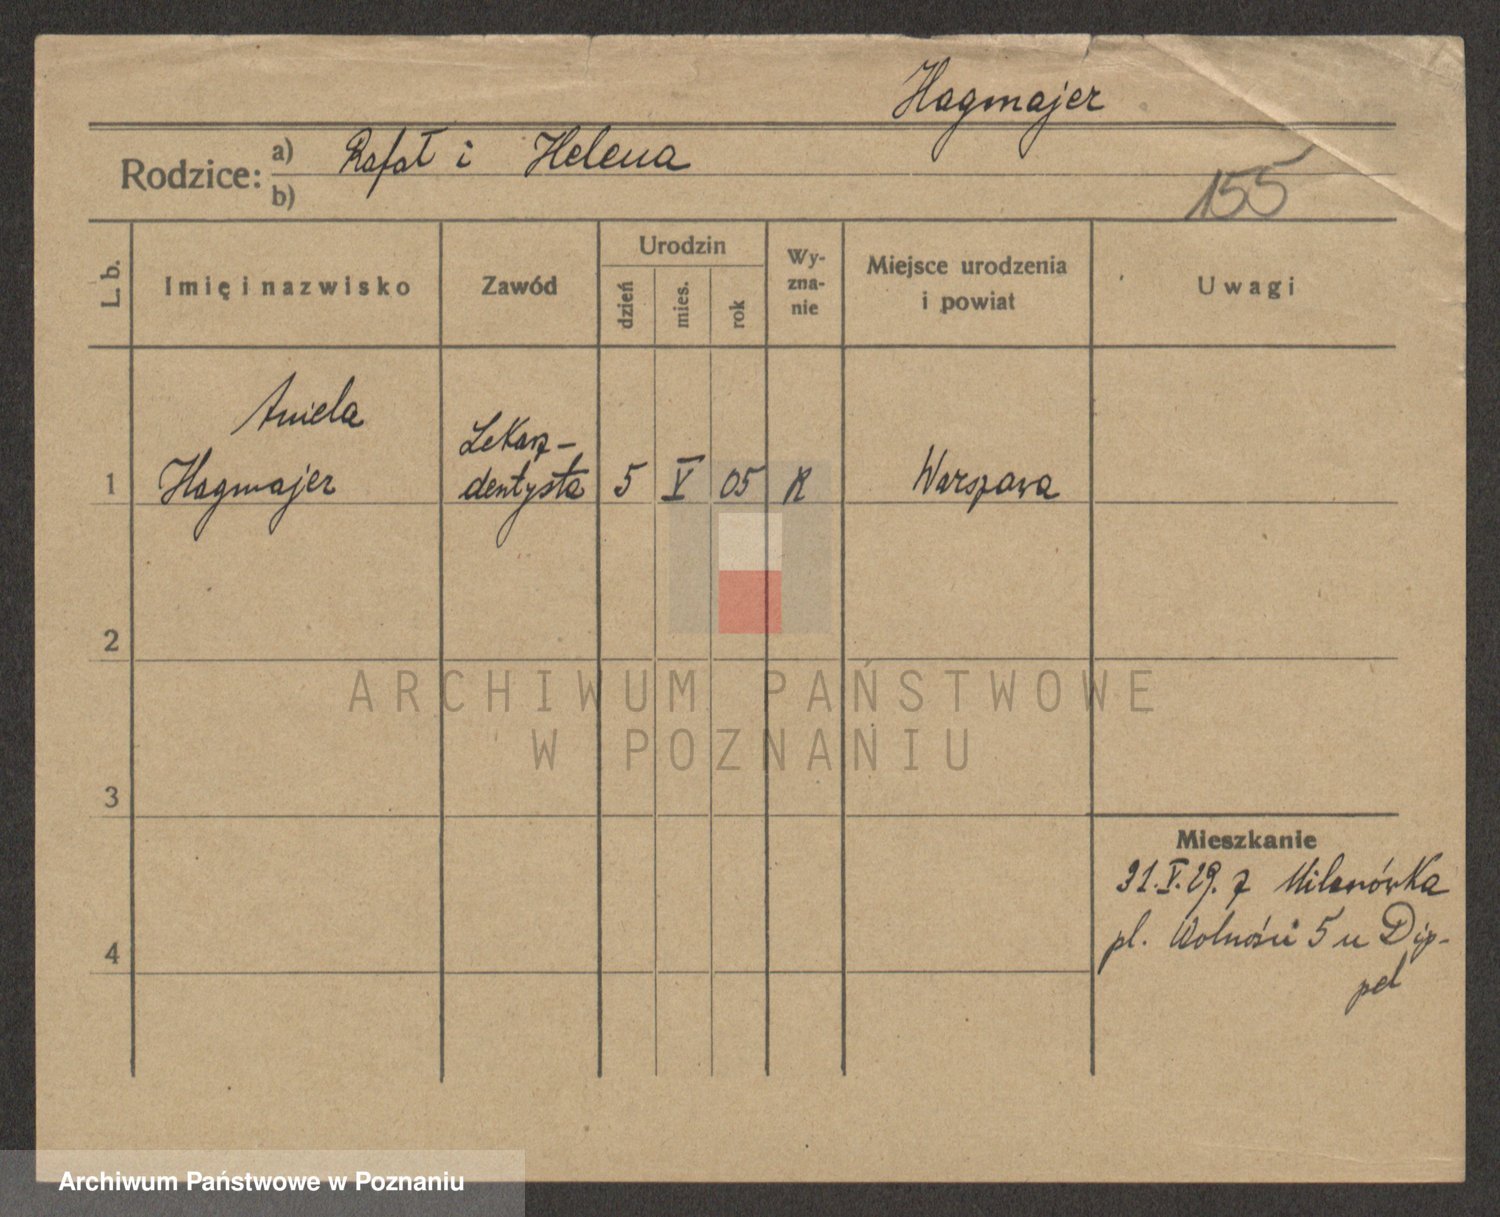 Hagmajer
Rodzice: a) Rafał i Helena
b)
155
L. b.
Imię i nazwisko
Zawód
Urodzin
dzień
mies.
rok
Wy-
zna-
nie
Miejsce urodzenia
i powiat
Uwagi
1
Aniela
Hagmajer
Lekarz-
dentysta
5
V
05
R
Warszawa
2
3
4
Mieszkanie
31.V.29. z Milanówka
pl. Wolności 5 u Dip-
pel
ARCHIWUM PAŃSTWOWE
W POZNANIU
Archiwum Państwowe w Poznaniu